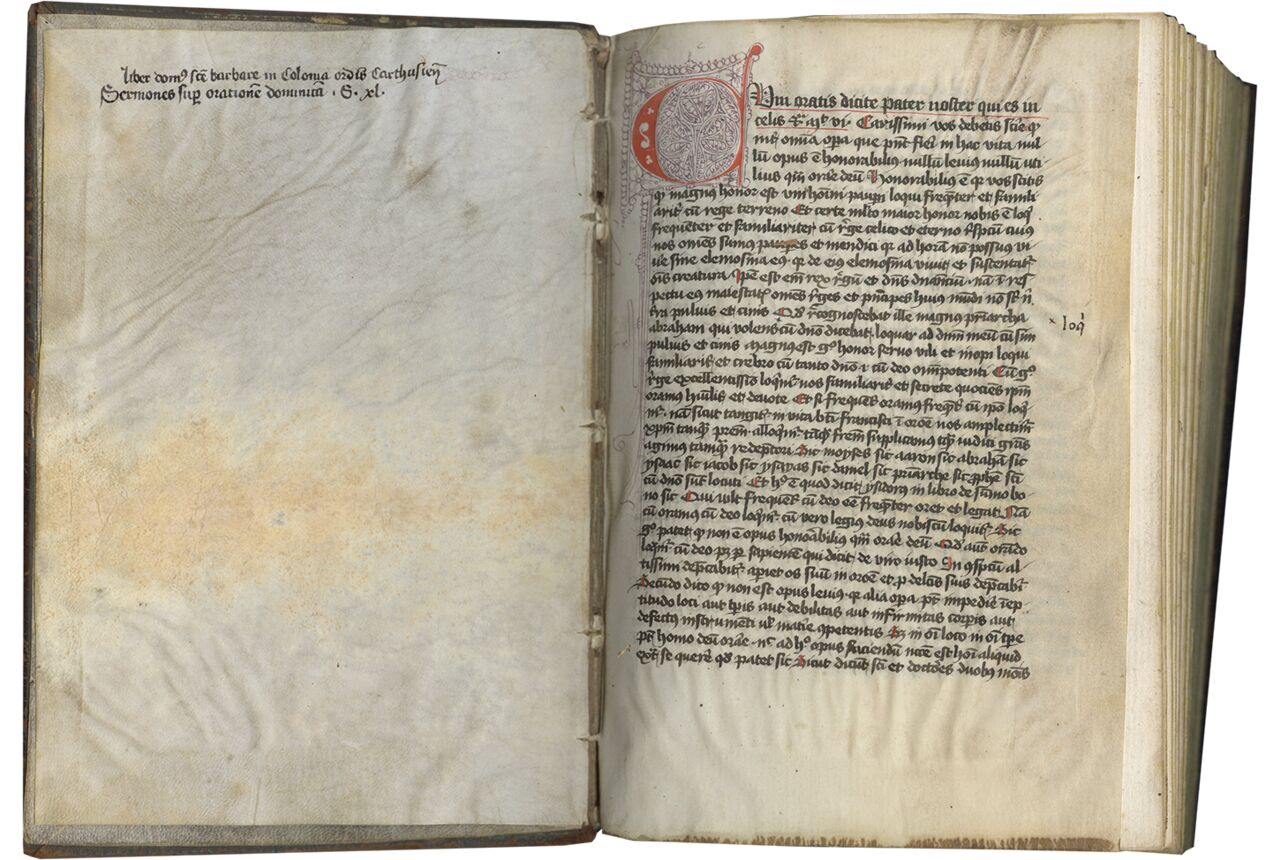 Liber dom9 scē barbare in Colonia ordīs Carthusieñ
Sermones sup oratione dominica . S . xl .
Cum oratis dicite Pater noster qui es in
celis vi . Carissimi vos debetis scire q
inter omīa opa que pnt fieri in hac vita nul
lū opus ē honorabilius nullū levius nullū uti
lius qm orare deū Honorabilius ē qr vos scitis
qr magnus honor est vni hoīni paupī loqui freqnter et famili
arit cū rege terreno Et certe mlto maior honor nobis ē loq
frequenter et familiariter cū rege celico et eterno cuius
nos omēs sumus et mendici qr ad horam nō possum9 vi
uere sine elemosina eius qr de eius elemosina viuit et sustentatr
oīs creatura Ipse est enī rex regū et dns dnanciū
pectu eius maiestatis omēs reges et prīcipes huius mūdi nō st n
puluis et cinis recognoscebat ille magnus priarcha
abraham qui volens cū dno dicebat loquar ad dnm meū cū sim
× loqi
puluis et cinis Magnus est g honor seruo vili et inopi loqui
familiarit et crebro cū tanto dno cū deo omīpotenti Cū g
rege excellentissimo loqmr nos familiarit et secrete quociens ipm
oramus humilit et deuote Et si frequent oramus freqnt cū ipo loq
mr nā sicut tangitr in vita bti francisci orōe nos amplectimr
xpm tanq prem alloqmr tanq frem supplicamus tanq iudici grās
agimus tamq redeptori Sic moyses sic aaron sic abrahā sic
ysaac sic iacob sic ysayas sic daniel sic priarche sic pphe sci
cū dno sut locuti Et h ē quod dicit ysidorus in libro de sūmo bo
no sic Qui vult frequent cū deo eē freqnter oret et legat Nā
cū oramus cū deo loqmr cū vero legim9 deus nobiscū loquitr Sic
g patet q non ē opus honorabilius qm orare deū aut orādo
loqmr cū deo p sapientē qui dicit de viro iusto In ōspctu al
tissimi depcabitr aperiet os suū in orōe et p delictis suis depcabitr
Secūdo dico q non est opus leuius qr alia opa impedire
titudo loci aut tpis aut debilitas aut infirmitas corpis aut
defectus instrumēti ul matie ōpetentis in oī loco in oī tpe
pt homo deū orare ad h opus faciendū est hoī aliquid
extra se querere qd patet sic Sicut dicut sci et doctores duobus modis